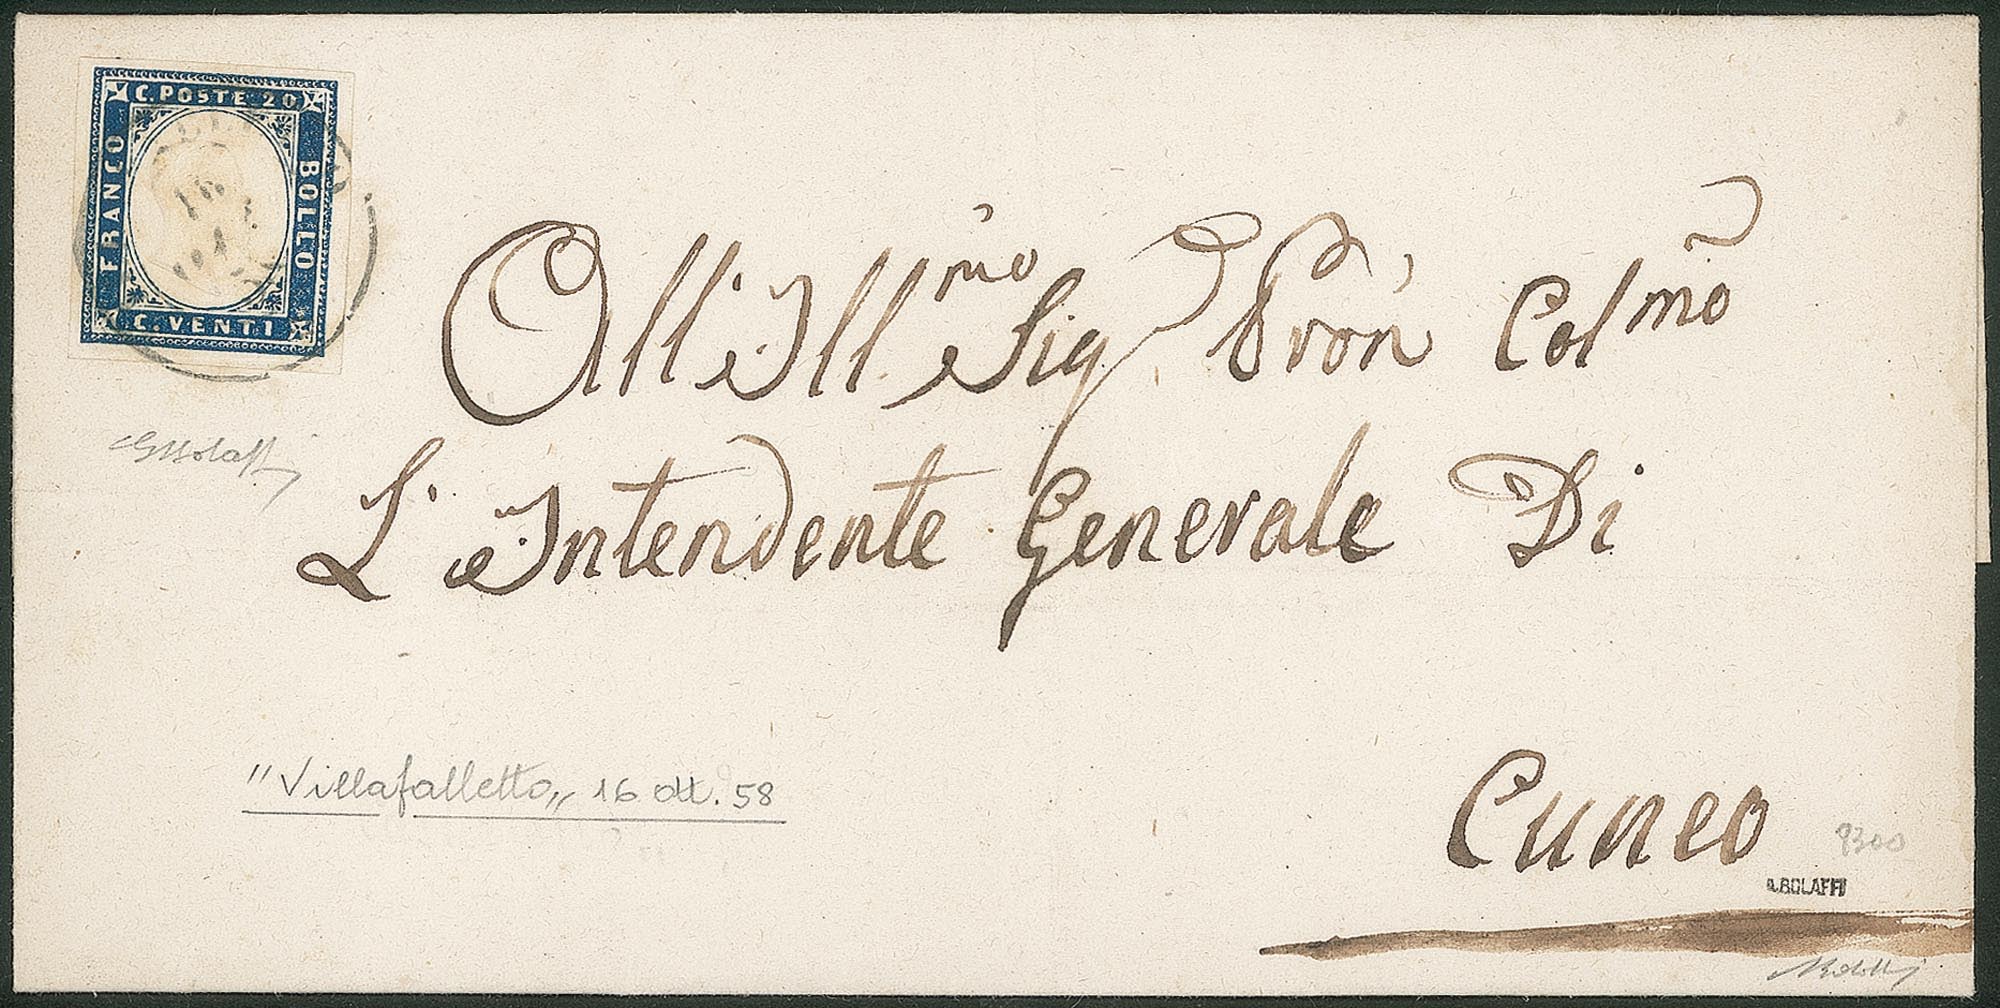 C. POSTE 20
FRANCO
BOLLO
C. VENTI
16
All' Ill.mo Sig Pron Colmo
L' Intendente Generale Di
Cuneo
"Villafalletto„ 16 ott. 58
9300
A. BOLAFFI